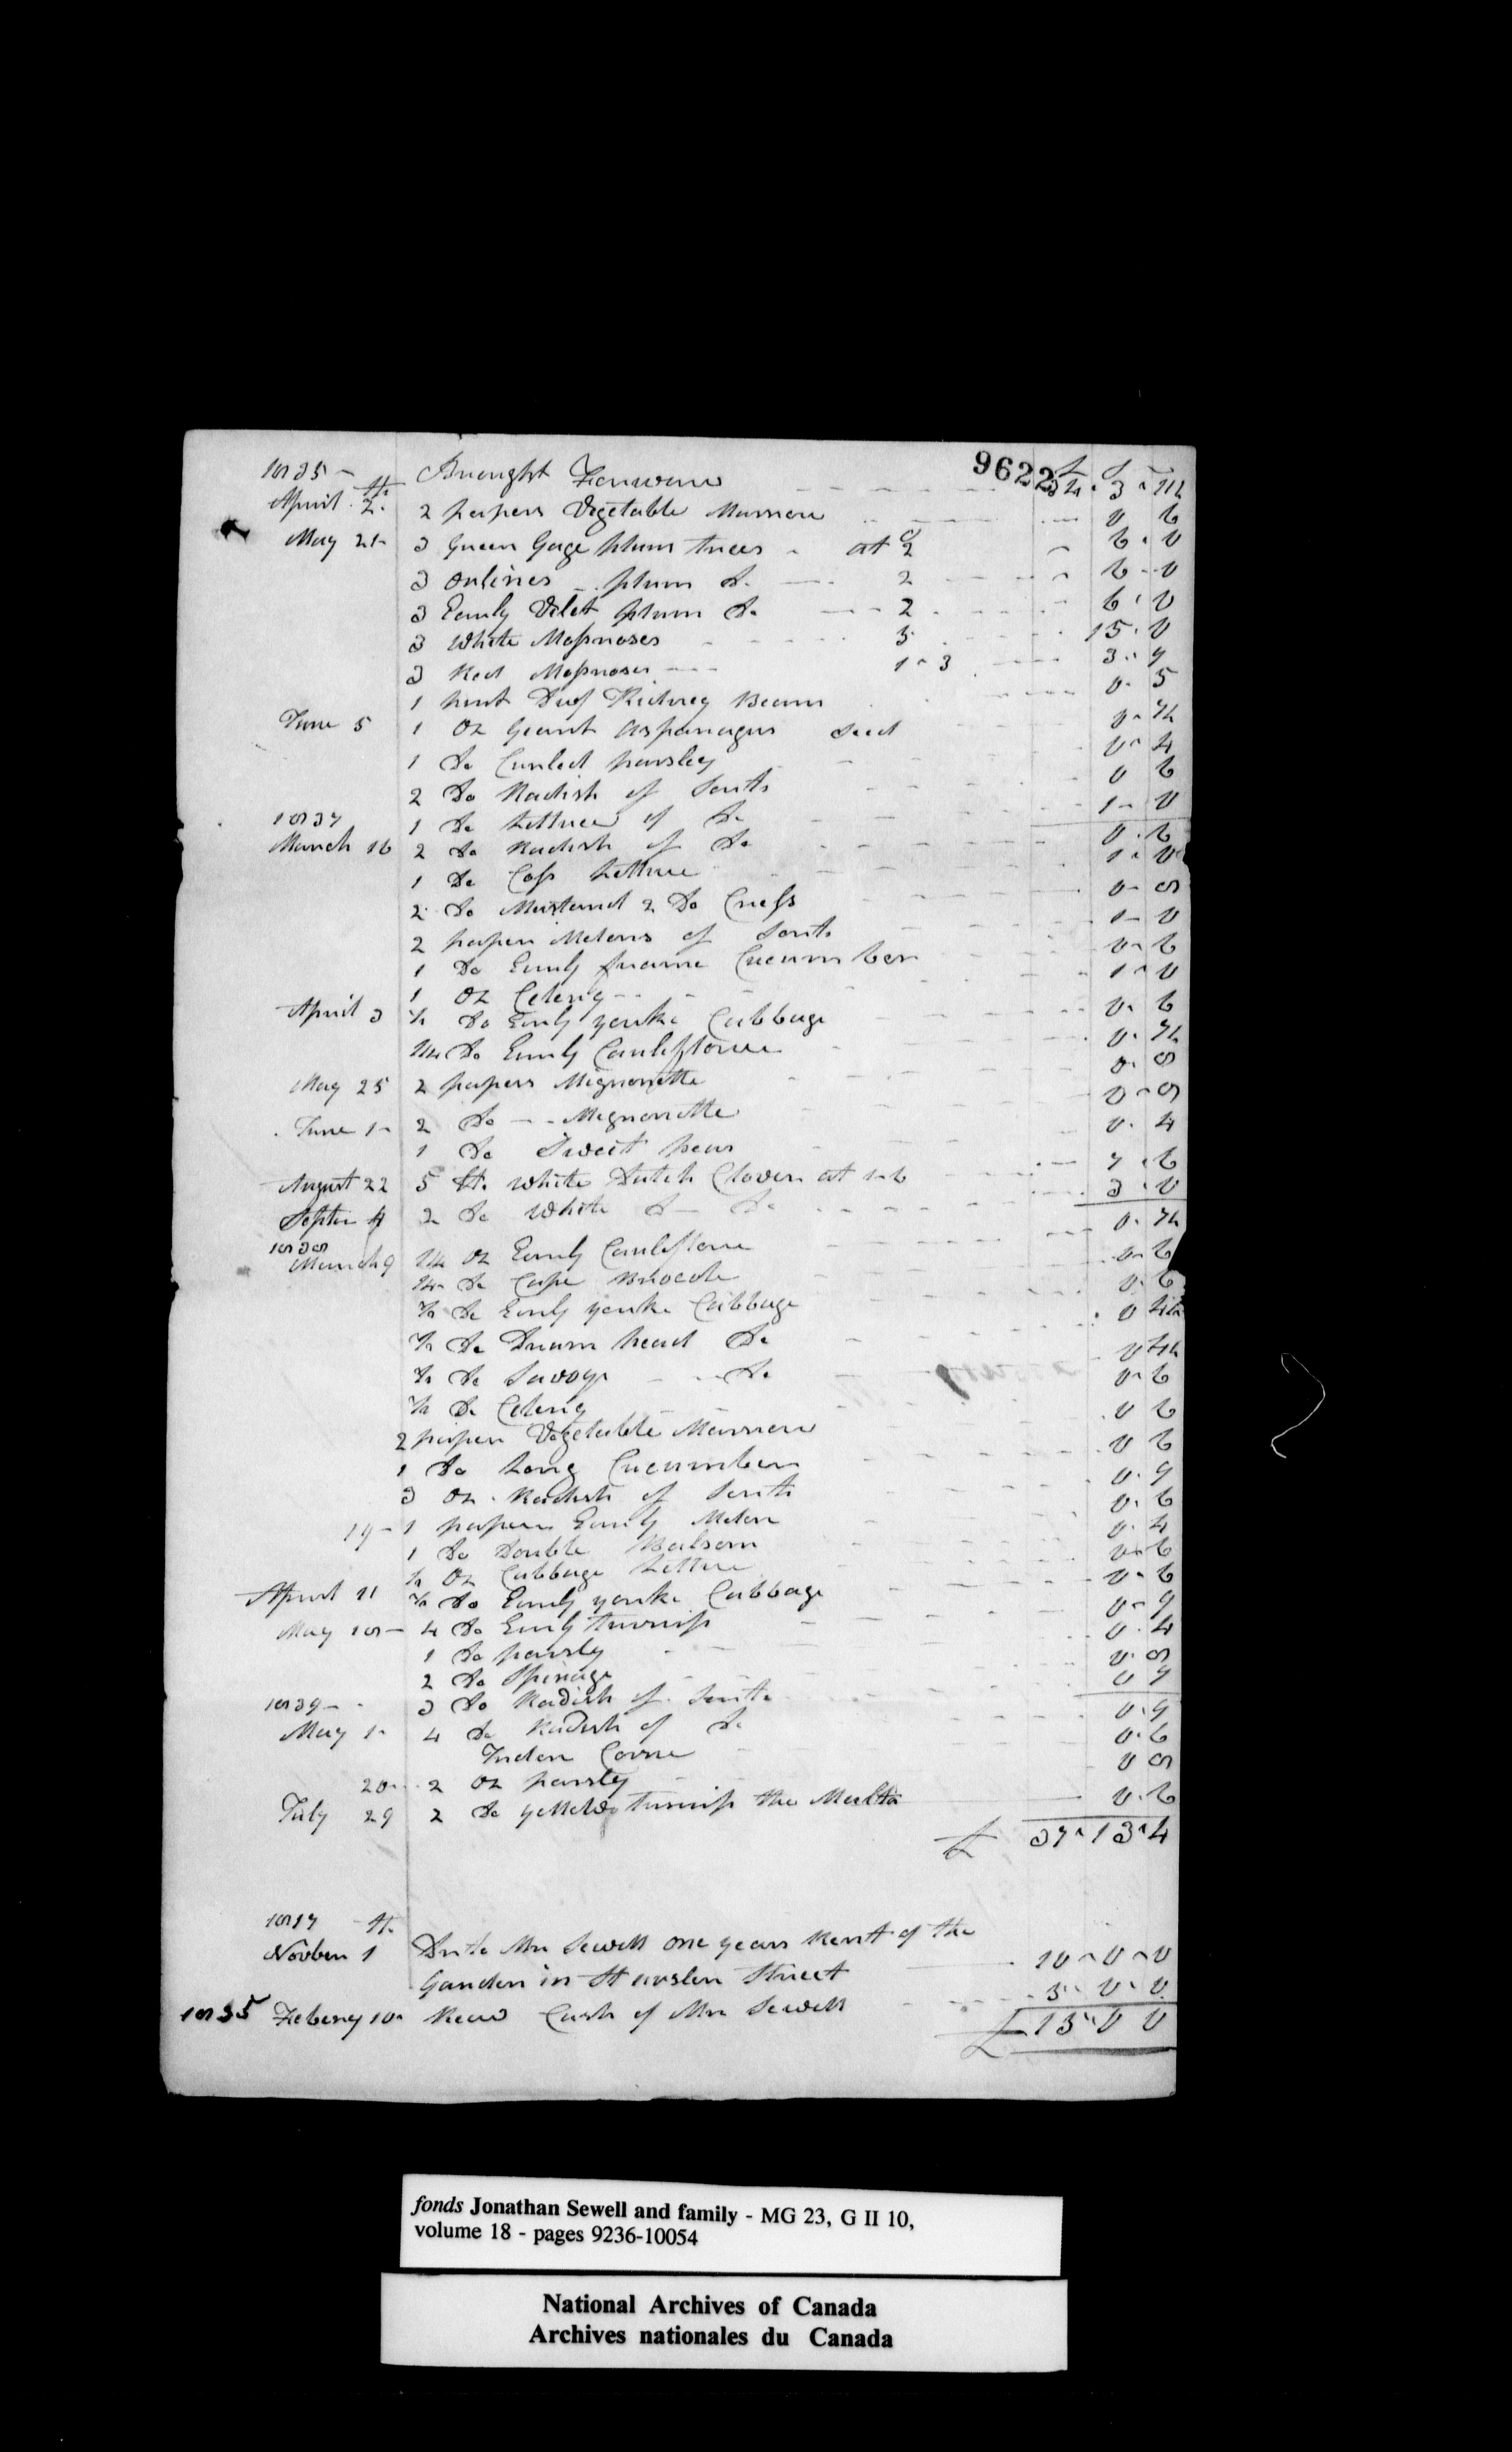 9622
1835 - Brought Forward £ 34 . 3 - 11½
April 2. 2 papers Vegetable Marrow 0 6
May 21- 3 Green Gage plum trees - at 2 6 . 0
3 orlines plum do. 2 6 - 0
3 Early Vilet plum Do. 2 6 . 0
3 White Mossroses 5 15 . 0
3 Red Mossroses 1 - 3 3 . 9
1 pint Duf Kidney Beans 0 . 5
June 5 1 Oz Geant Asparagus Seed 0 - 7½
1 Do Curled parsley 0 - 4
2 Do Radish of Sorts 0 6
1 Do Lettuce of Do 1 - 0
1837
March 16 2 Do Radish of Do 0 . 6
1 Do Coss Lettuce 1 - 0
2 Do Mustard 2 Do Cress 0 - 8
2 paper Melons of Sorts 1 - 0
1 Do Early frame Cucumber 0 - 6
1 Oz Celery 1 - 0
April 3 ½ Do Early yorke Cabbage 0 . 6
1/4 Do Early Cauliflower 0 . 7½
May 25 2 papers Mignonette 0 . 8
June 1- 2 Do - - Mignonette 0 - 8
1 Do Sweet peas 0 . 4
August 22 5 lb. White Dutch Clover at 1-6 7 . 6
Septer 4 2 Do White D- Do 3 . 0
1838
March 9 1/4 Oz Early Cauliflower 0 . 7½
1/4 Do Cape Brocole 0 - 6
½ Do Early yorke Cabbage 0 . 6
½ Do Drum head Do 0 4½
½ Do Savoye Do. 0 4½
½ Do Celery 0 - 6
2 paper Vegetable Marrow 0 6
1 Do Long Cucumber 0 6
3 Oz . Radish of Sorts 0 . 9
19 - 1 paper Early Melon 0 . 6
1 Do Double Balsom 0 . 4
½ Oz Cabbage Lettuce 0 - 6
April 11 ½ Do Early yorke Cabbage 0 - 6
May 18 - 4 Do Early turnip 0 - 9
1 Do parsly 0 . 4
2 Do Spinage 0 . 8
3 Do Radish of Sorts 0 9
1839 -
May 1- 4 Do Radish of Do 0 . 9
Indon Corne 0 . 6
20 - 2 Oz parsly 0 8
July 29 2 Do yellow turnip the Malta 0 . 6
£ 37 - 13 - 4
1817
Novber 1 Du to Mr Sewell one years Rent of the
Garden in St Ursler Street 10 - 0 - 0
1835 Febery 10- Recd Cash of Mr Sewell 5 - 0 - 0
£ 15 - 0 0
fonds Jonathan Sewell and family - MG 23, G II 10,
volume 18 - pages 9236-10054
National Archives of Canada
Archives nationales du Canada